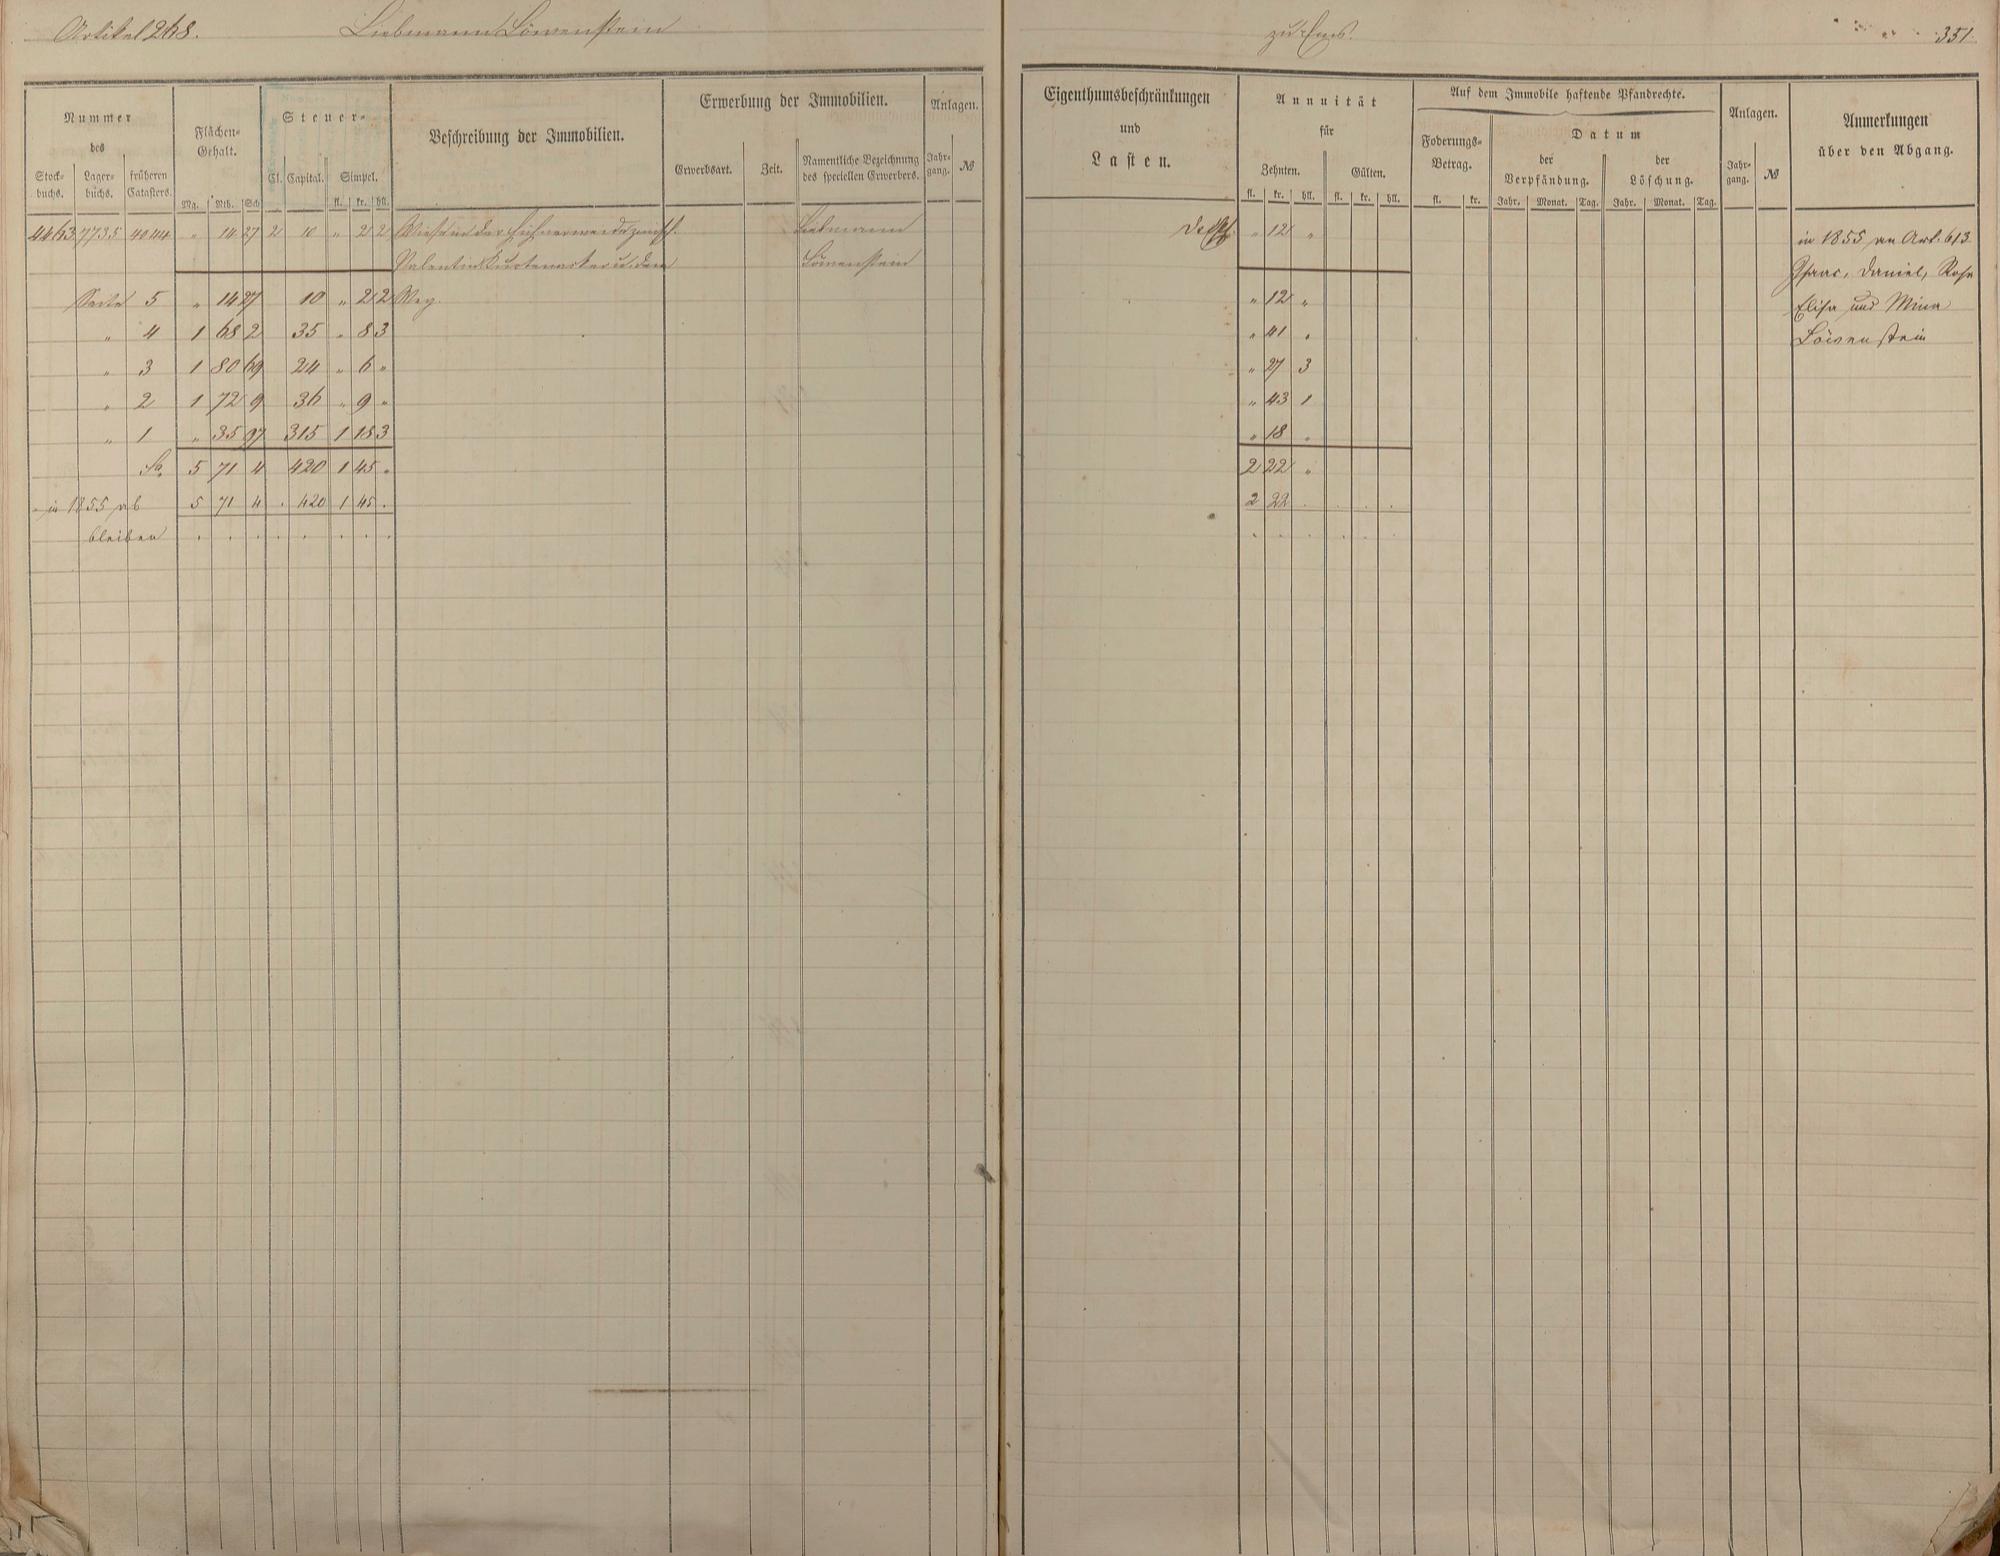 Artikel 268. Liebmann Löwenstein zu Ems. 351.
Nummer
des
Stock-
buchs.
Lager-
buchs.
früheren
Catasters.
Flächen-
Gehalt.
Mg. Rth. Sch
Steuer-
Cl. Capital. Simpel.
fl. kr. hll.
Beschreibung der Immobilien.
Erwerbung der Immobilien.
Erwerbsart. Zeit.
Namentliche Bezeichnung
des speciellen Erwerbers.
Anlagen.
Jahr-
gang. №
4463. 7735 40414 " 14 27 2 10 " 2 2 Wiese in der zwisch. Liebmann
Valentin u. dem Löwenstein
Seite 5 " 14 27 10 " 2 2 Weg.
" 4 1 68 2 35 " 8 3
" 3 1 80 69 24 " 6 "
" 2 1 72 9 36 " 9 "
" 1 " 35 97 315 1 18 3
Sa. 5 71 4 420 1 45 "
in 1855 ab 5 71 4 . 420 1 45 .
bleiben . . . . . . . .
Eigenthumsbeschränkungen
und
Lasten.
Annuität
für
Zehnten. Gülten.
fl. kr. hll. fl. kr. hll.
Auf dem Immobile haftende Pfandrechte.
Foderungs-
Betrag.
fl. kr.
Datum
der
Verpfändung.
Jahr. Monat. Tag.
der
Löschung.
Jahr. Monat. Tag.
Anlagen.
Jahr-
gang. №
Anmerkungen
über den Abgang.
" 12 "
" 12 "
" 41 "
" 27 3
" 43 1
" 18 "
2 22 "
2 22 . . . .
. . . . . .
in 1855 an Art. 613
Isaac, Daniel, Rosa
Elisa und Mina
Löwenstein